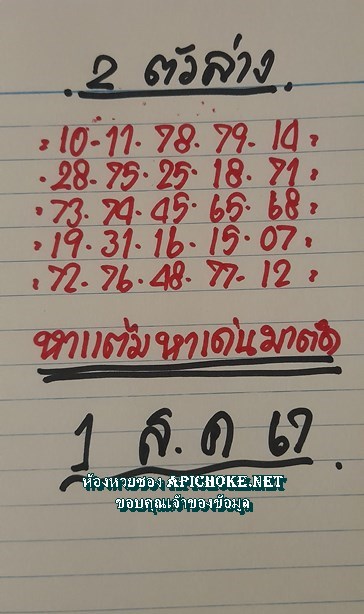 . 2 ตัวล่าง .
: 10 - 11. 78. 79. 14 :
. 28. 75. 25. 18. 71 :
: 73. 74. 45. 65. 68 :
: 19. 31. 16. 15. 07 :
: 72. 76. 48. 77. 12 :
หาแต้มหาเด่นมาตัด
1 ส.ค 67.
ห้องหวยซอง APICHOKE.NET
ขอบคุณเจ้าของข้อมูล